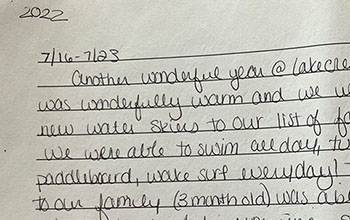 2022
7/16-7/23
Another wonderful year @ Lakecre
was wonderfully warm and we
new water skiers to our list of fa
We were able to swim all day, tu
paddleboard, wake surf everyday!
to our family (3 month old) was a b